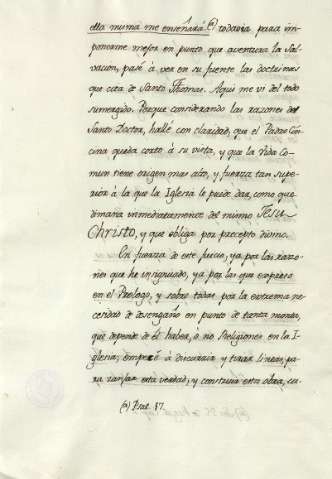 ella misma me enseñará (a) todavia para im-
ponerme mejor en punto que aventura la Sal-
vacion, pasé à ver en su fuente las doctrinas
que cita de Santo Thomas. Aqui me vi del todo
sumergido. Porque considerando las razones del
Santo Doctor, hallé con claridad, que el Padre Con-
cina queda corto à su vista, y que la Vida Co-
mun tiene origen mas alto, y fuerza tan supe-
rior à la que la Iglesia le puede dar, como que
dimana inmediatamente del mismo Jesu-
Christo, y que obliga por precepto divino.
En fuerza de este juicio, ya por las razo-
nes que he insinuado, ya por las que expreso
en el Prologo, y sobre todas, por la extrema ne-
cesidad de desengaño en punto de tanta monta,
que depende de èl haber, ò no Religiones en la I-
glesia; empezé à discurrir y tirar lineas, pa-
ra zanjar esta verdad, y construir esta obra, cu-
(a) Psal. 87.